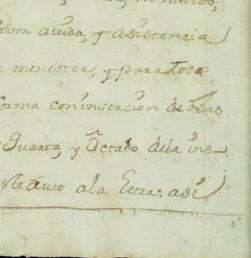 favor ayuda, y asistencia
menester, y para todo
forma con insercion de las
Quarta, y Octabo dela ins
ala letra: asi